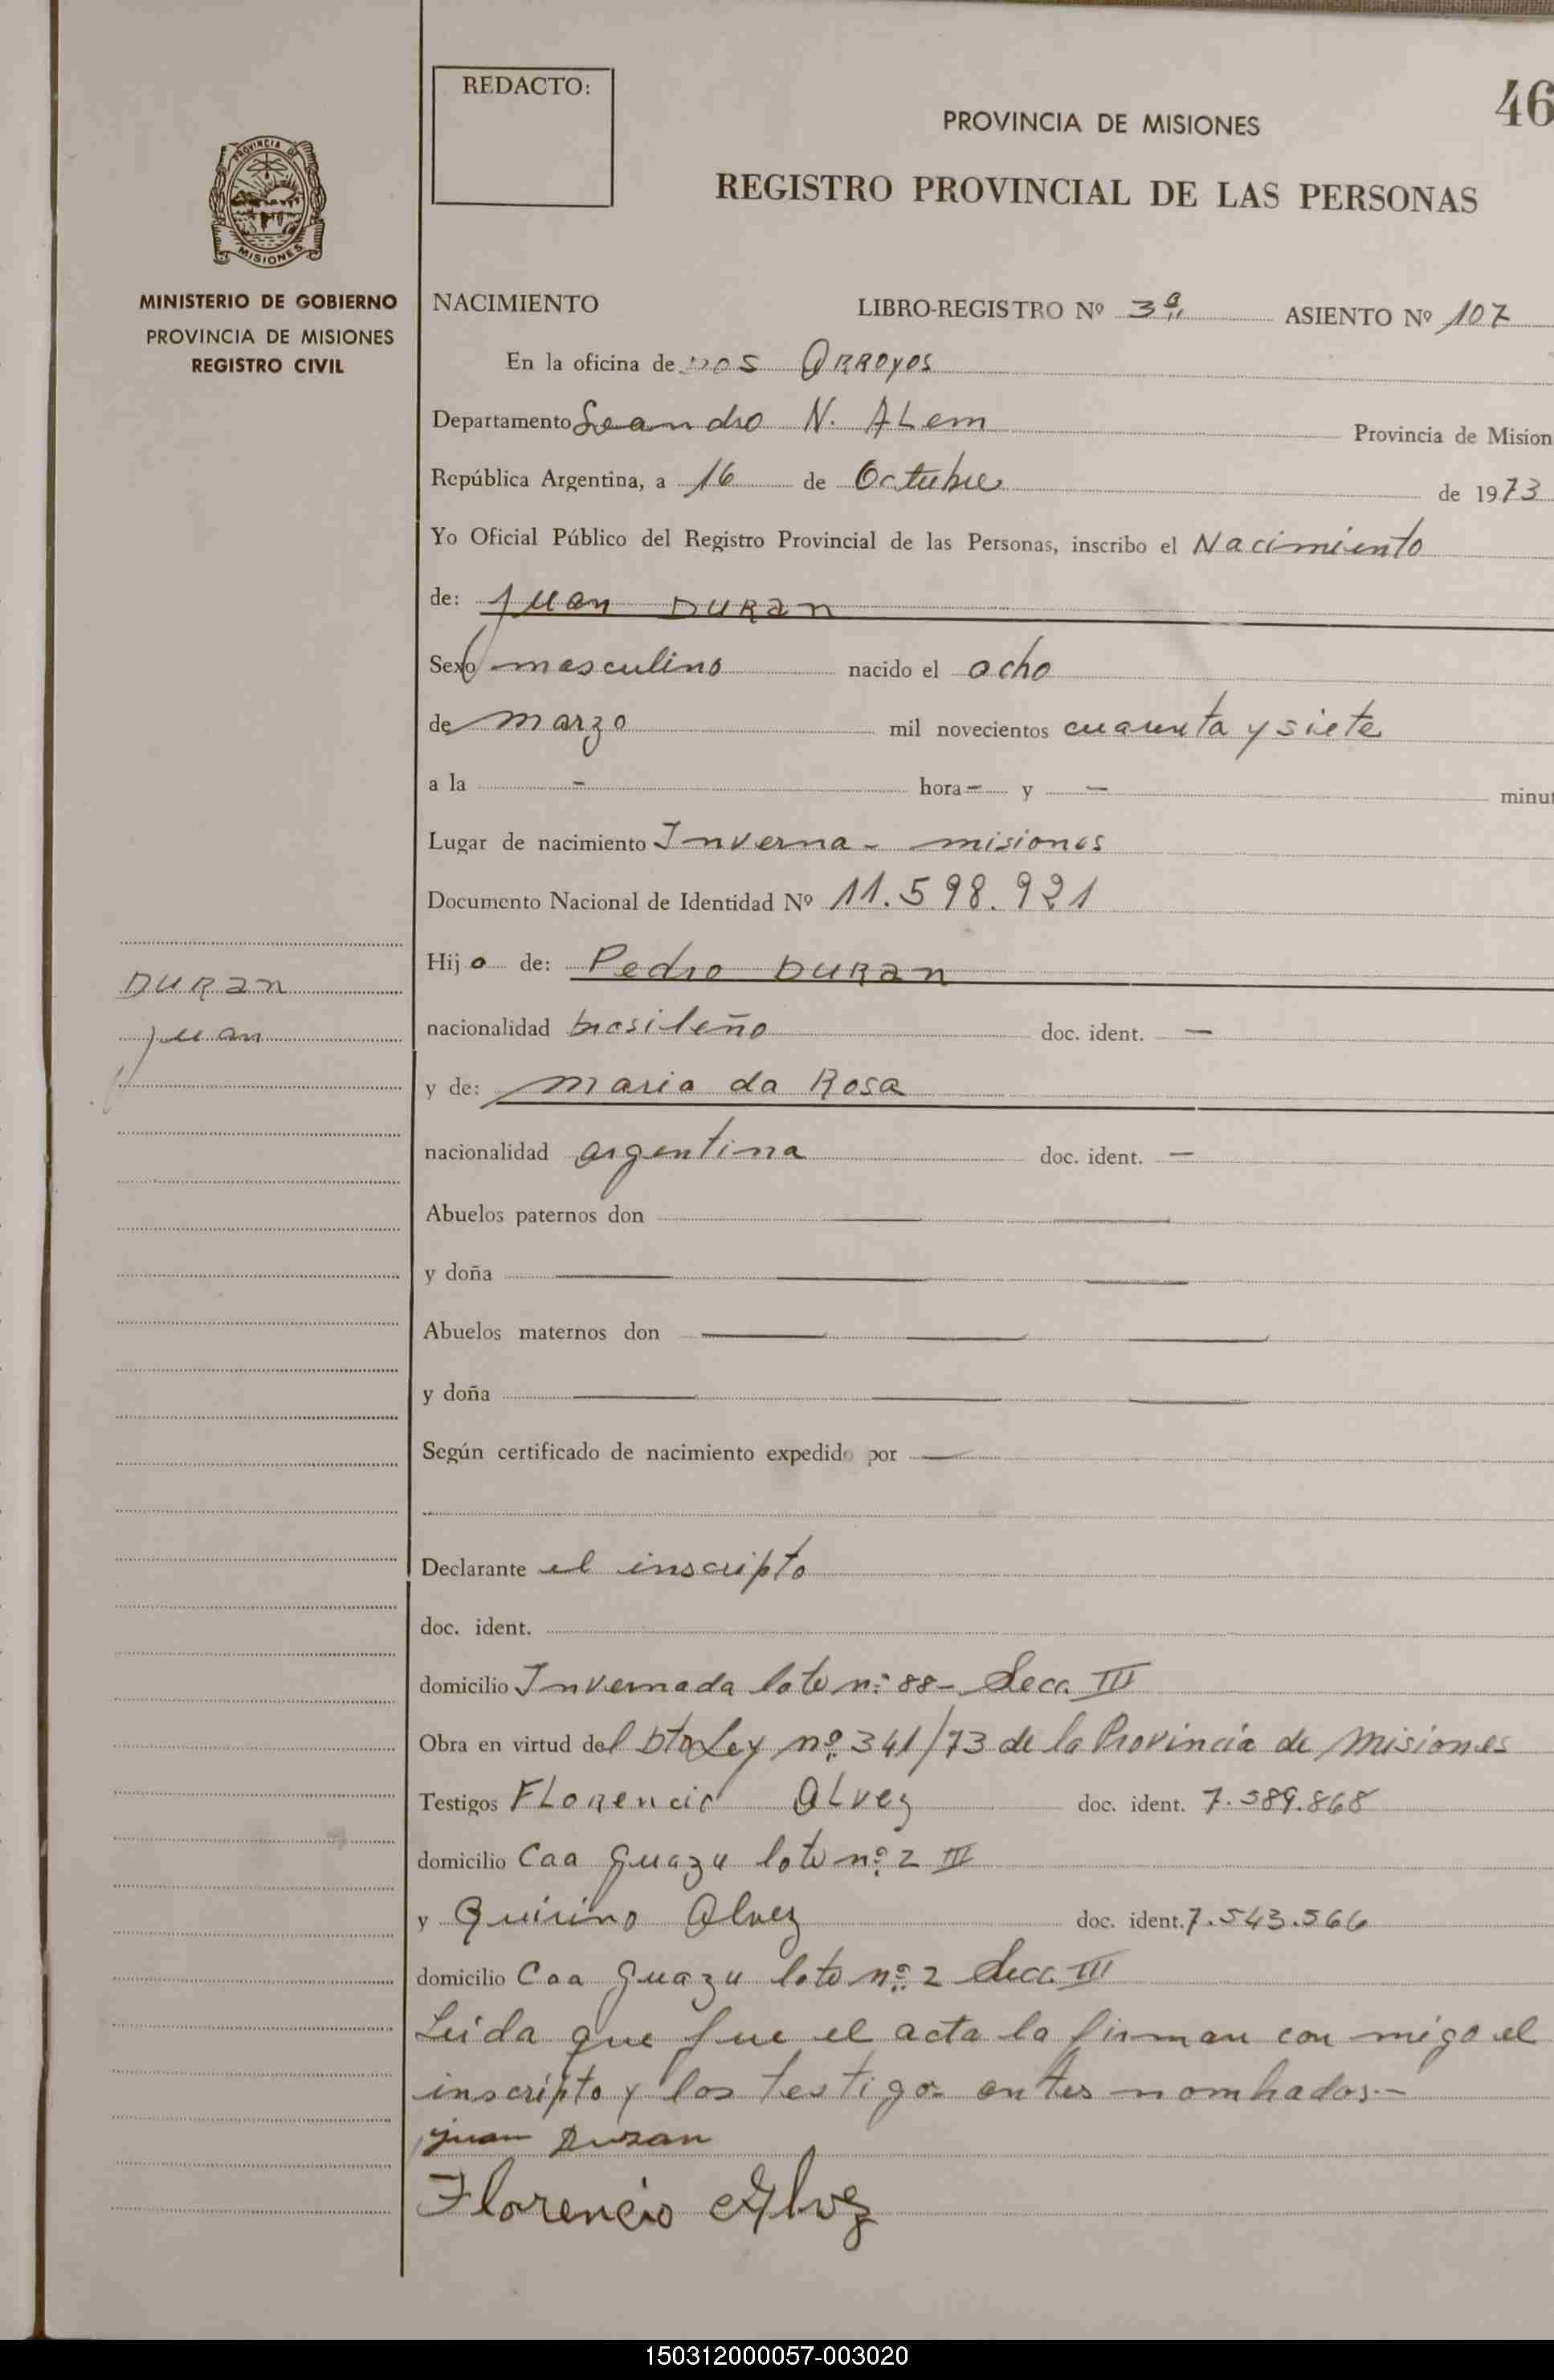 REDACTO:
46
PROVINCIA DE MISIONES
REGISTRO PROVINCIAL DE LAS PERSONAS
PROVINCIA DE
MISIONES
MINISTERIO DE GOBIERNO
PROVINCIA DE MISIONES
REGISTRO CIVIL
NACIMIENTO LIBRO-REGISTRO Nº 3ª ASIENTO Nº 107
En la oficina de DOS ARROyos
Departamento Leandro N. ALem Provincia de Mision
República Argentina, a 16 de Octubre de 1973
Yo Oficial Público del Registro Provincial de las Personas, inscribo el Nacimiento
de: Juan DURan
Sexo masculino nacido el ocho
de marzo mil novecientos cuarenta y siete
a la - hora - y - minut
Lugar de nacimiento Inverna - misiones
Documento Nacional de Identidad Nº 11.598.921
Hijo de: Pedro DURan
DURan
Juan
nacionalidad brasileño doc. ident. -
y de: maria da Rosa
nacionalidad argentina doc. ident. -
Abuelos paternos don
y doña
Abuelos maternos don
y doña
Según certificado de nacimiento expedido por
Declarante el inscripto
doc. ident.
domicilio Invernada lote nº 88 - Secc. III
Obra en virtud del Dto Ley nº 341/73 de la Provincia de Misiones
Testigos FLorencio Alvez doc. ident. 7.589.868
domicilio Caa Guazu lote nº 2 III
y Quirino Alvez doc. ident. 7.543.566
domicilio Caa Guazu lote nº 2 Secc. III
Leida que fue el acta la firman con migo el
inscripto y los testigos antes nombrados.-
juan Duran
Florencio Alvez
150312000057-003020